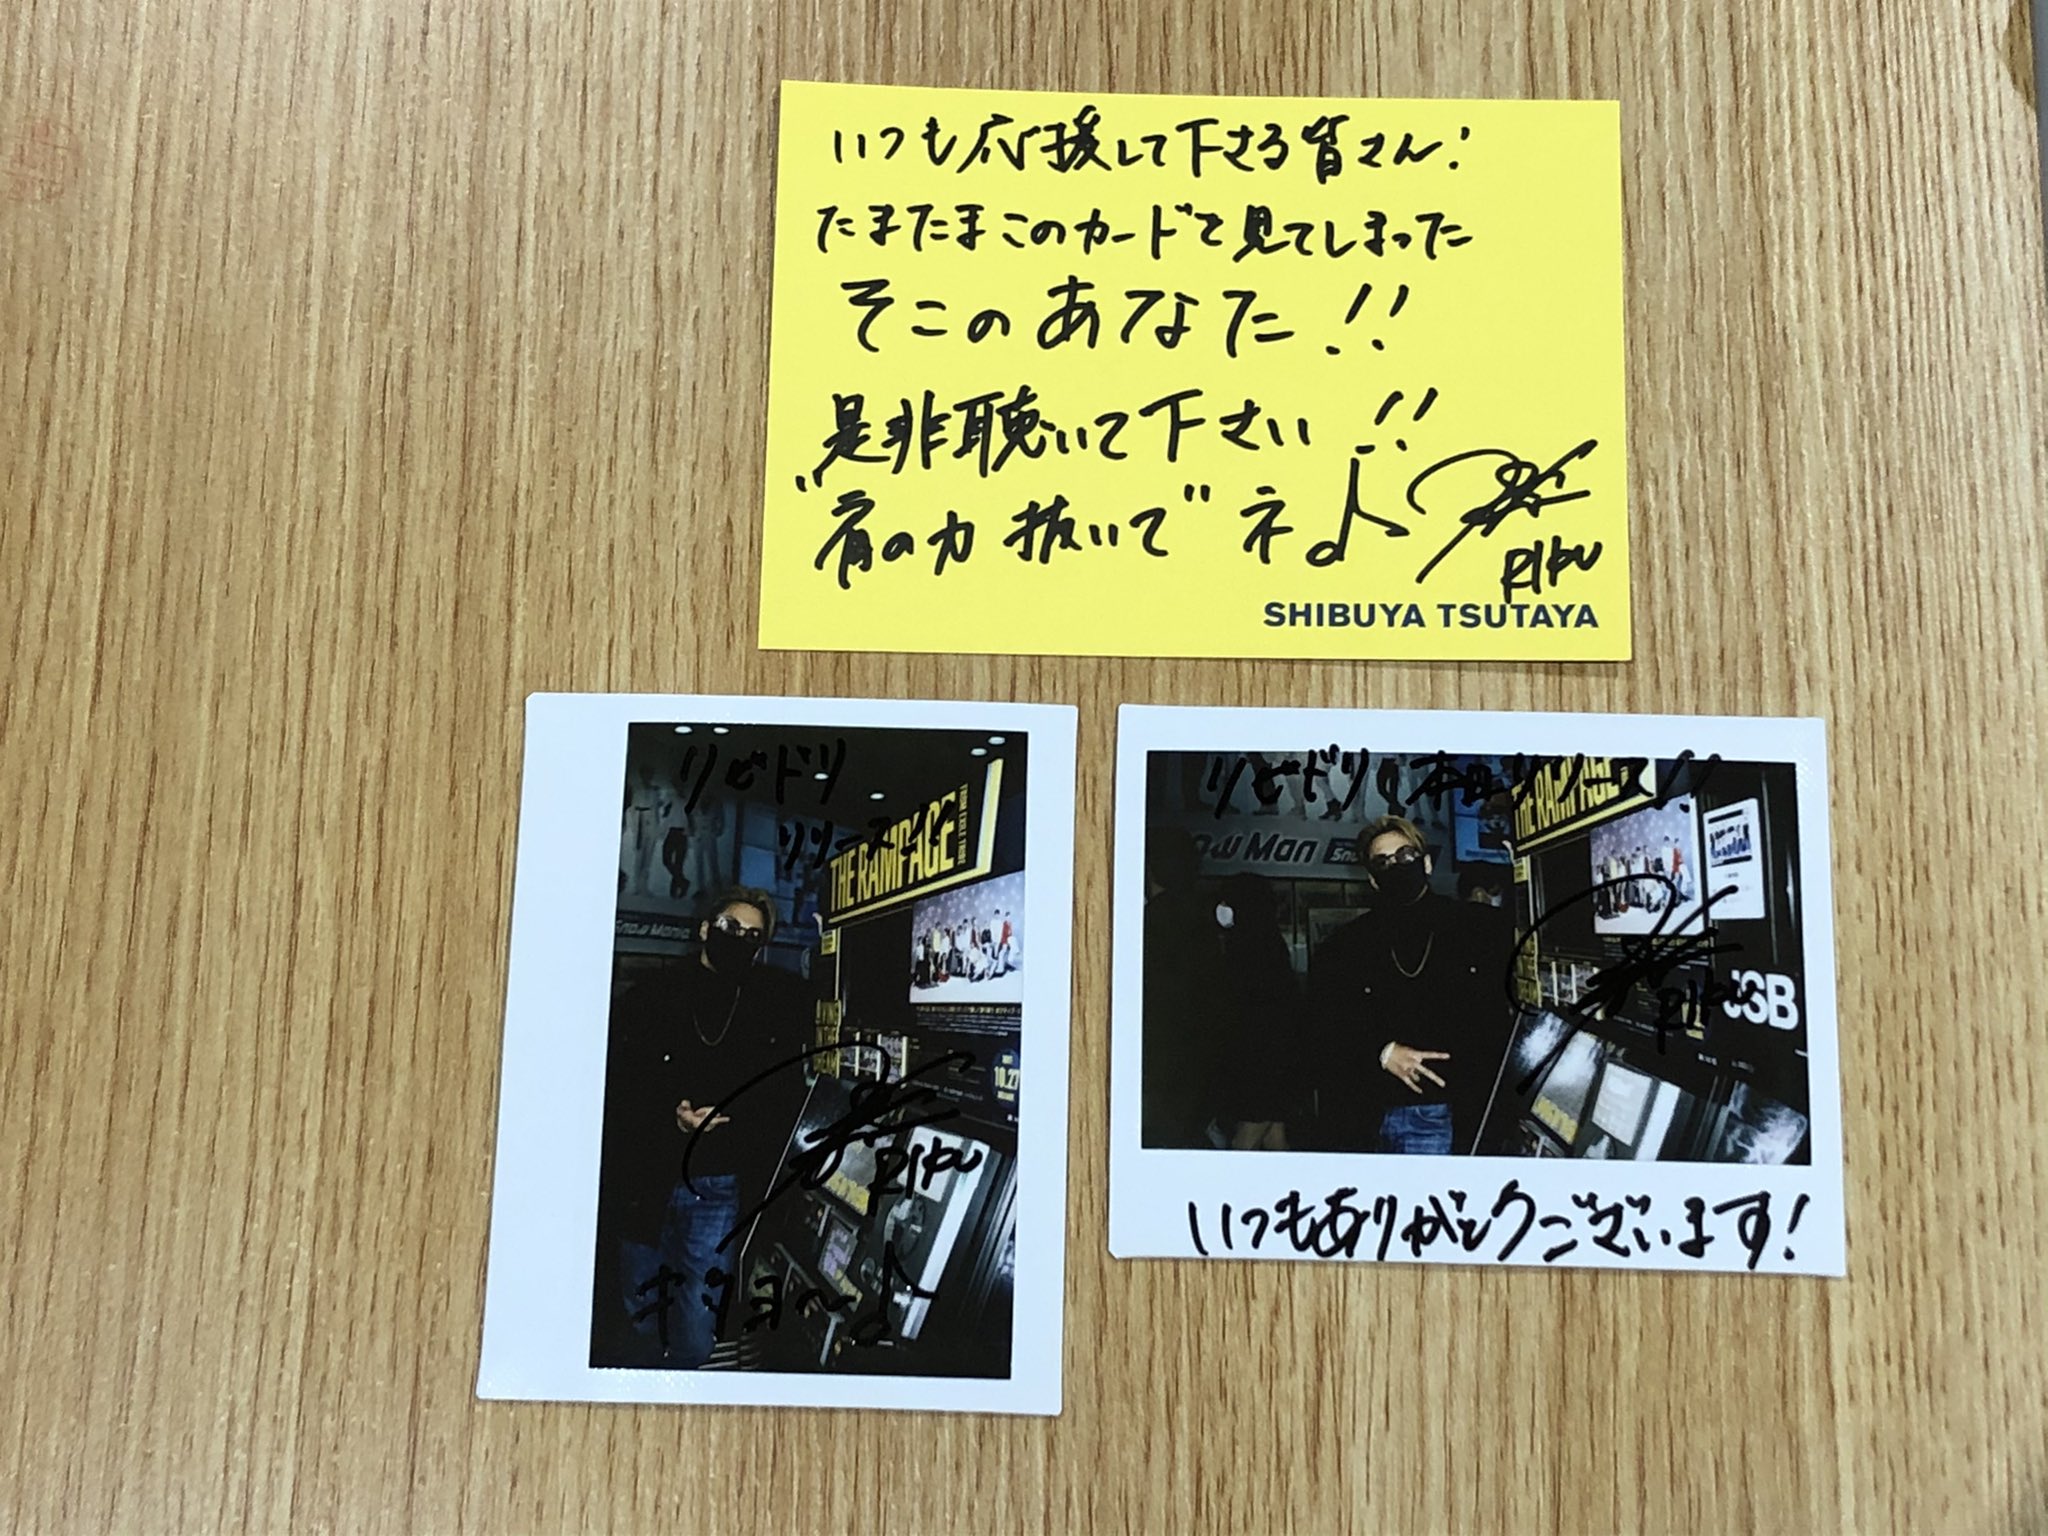 いつも応援して下さる皆さん!
たまたまこのカードを見てしまった
そこのあなた!!
是非聴いて下さい!!
"肩の力抜いて"ネ♪
RIKU
SHIBUYA TSUTAYA
リビドリ
リリース!!
THE RAMPAGE
FROM EXILE TRIBE
Snow Mania
LIVING
IN THE
DREAM
10.27
RIKU
キタヨ〜♪
リビドリ本日リリース!!
THE RAMPAGE
now Man
RIKU
JSB
いつもありがとうございます!